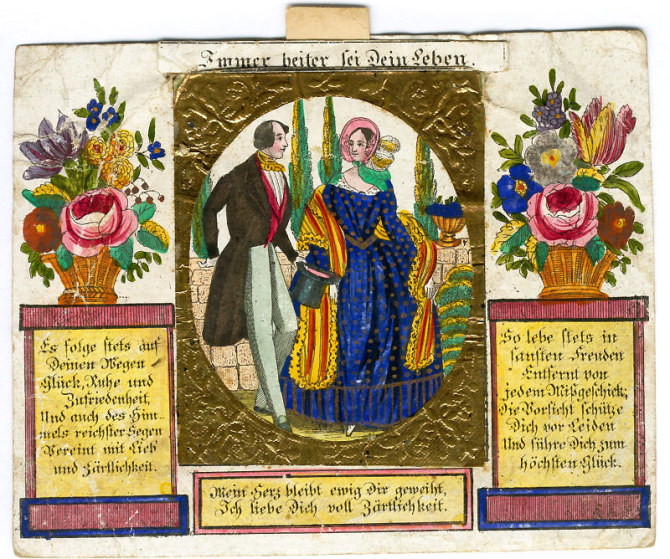 Immer heiter sei Dein Leben.
Es folge stets auf
Deinen Wegen
Glück, Ruhe und
Zufriedenheit,
Und auch des Him-
mels reichster Segen
Vereint mit Lieb'
und Zärtlichkeit.
So lebe stets in
sanften Freuden
Entfernt von
jedem Mißgeschick;
Die Vorsicht schütze
Dich vor Leiden
Und führe Dich zum
höchsten Glück.
Mein Herz bleibt ewig Dir geweiht,
Ich liebe Dich voll Zärtlichkeit.